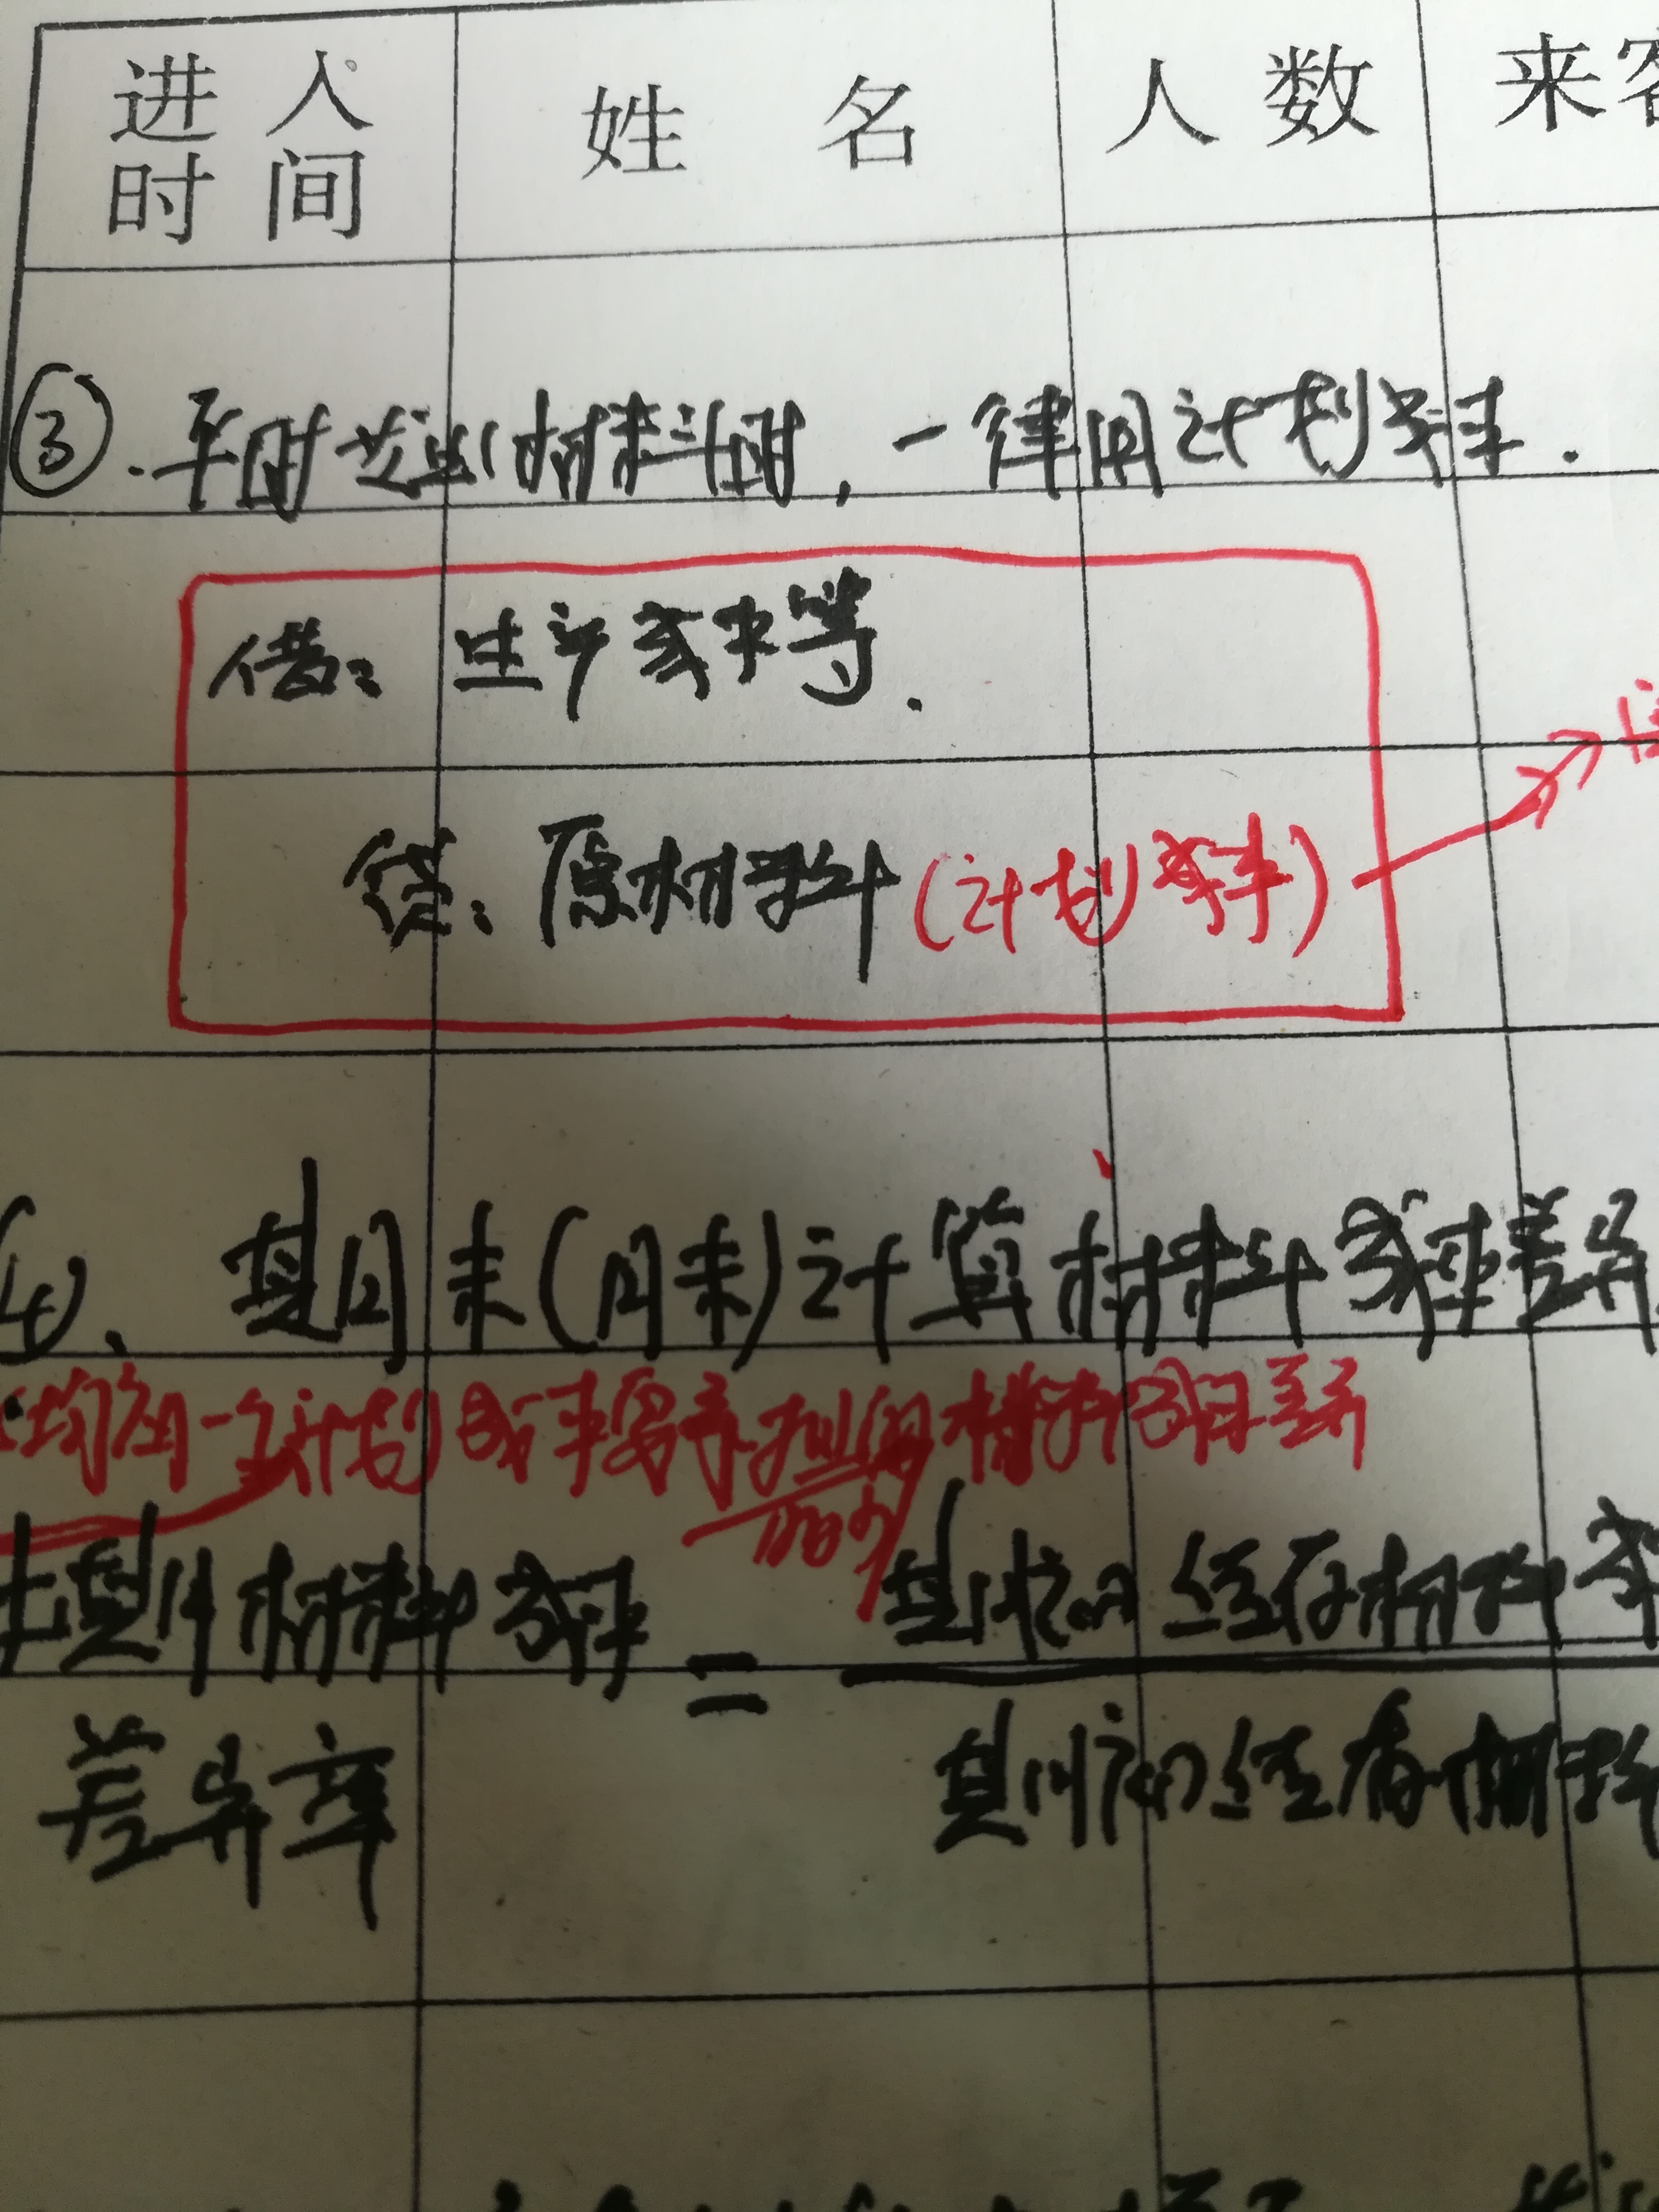 进入时间 姓名 人数 来客
③.平时发出材料时,一律用计划成本.
借:生产成本等.
贷:原材料(计划成本)
④、期末(月末)计算材料成本差异
均衡一个计划成本需要承担的材料成本差异
本期材料成本 = 期初结存材料成
差异率 期初结存材料